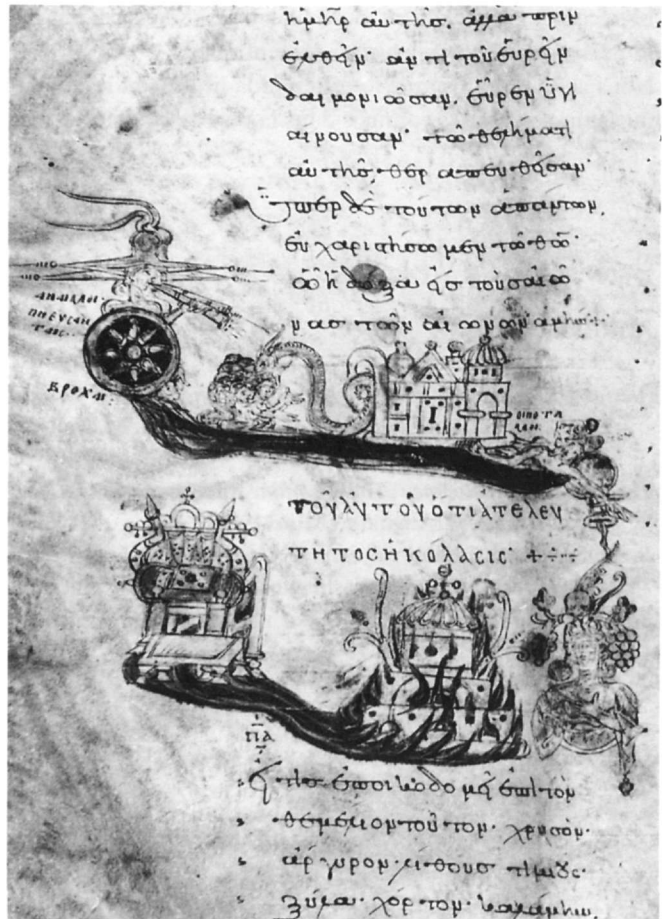 αὐτῆς. ἀλλὰ πρὶν
ἐλθεῖν· ἀντὶ τοῦ εὑρεῖν
δαιμονιῶσαν. εὗρεν ὑγι
αίνουσαν· τῶ θελήματι
αὐτῆς θεραπευθεῖσαν·
ὑπὲρ δὲ τούτων ἁπάντων,
εὐχαριστήσωμεν τῶ θῶ·
ὧ ἡ δόξα εἰς τοὺς αἰῶ
νας τῶν αἰώνων ἀμήν:
ΒΡΟΧΗ:
ΟΙ ΠΟΤΑ
ΜΟΙ:
ΤΟΥ ΑΥΤΟΥ ΟΤΙ ΑΤΕΛΕΥ
ΤΗΤΟΣ Η ΚΟΛΑΣΙΣ·
ΠΑ
εἴ τις ἐποικοδομεῖ ἐπὶ τὸν
θεμέλιον τοῦτον· χρυσὸν·
ἄργυρον· λίθους τιμίους·
ξύλα· χόρτον· καλάμην.